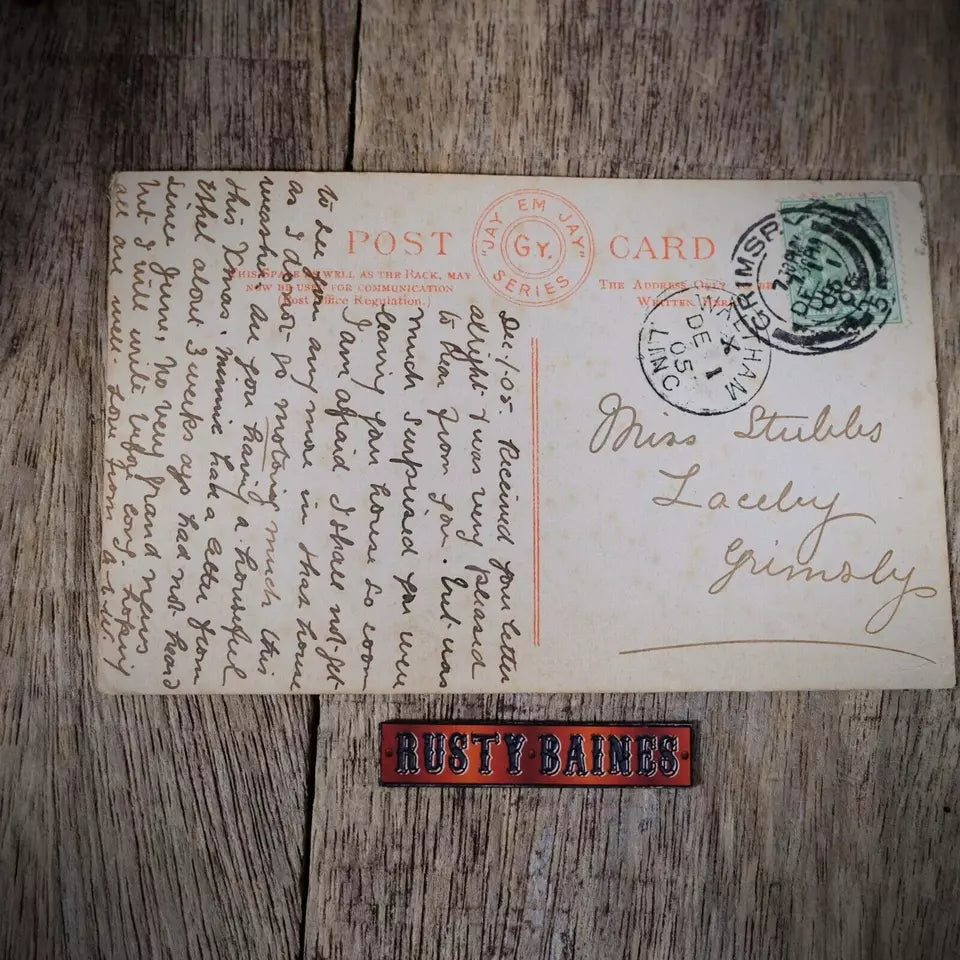 POST CARD
"JAY EM JAY" SERIES
G.Y.
THIS SPACE AS WELL AS THE BACK, MAY
NOW BE USED FOR COMMUNICATION
(Post Office Regulation.)
THE ADDRESS ONLY TO BE
WRITTEN HERE
GRIMSBY
7.30PM
DE 1
05
WALTHAM
DE 1
05
LINC
Dec. 1/05. Received your letter
alright & was very pleased
to hear from you. But was
much surprised you were
leaving your house so soon
I am afraid I shall not get
to see you any more in that house
as I don't go motoring much this
weather. Are you having a houseful
this Xmas. Minnie had a letter from
Ethel about 3 weeks ago had not heard
since June. No very grand news
but I will write before long. hoping
all are well. Love from
Miss Stubbs
Laceby
Grimsby
RUSTY·BAINES